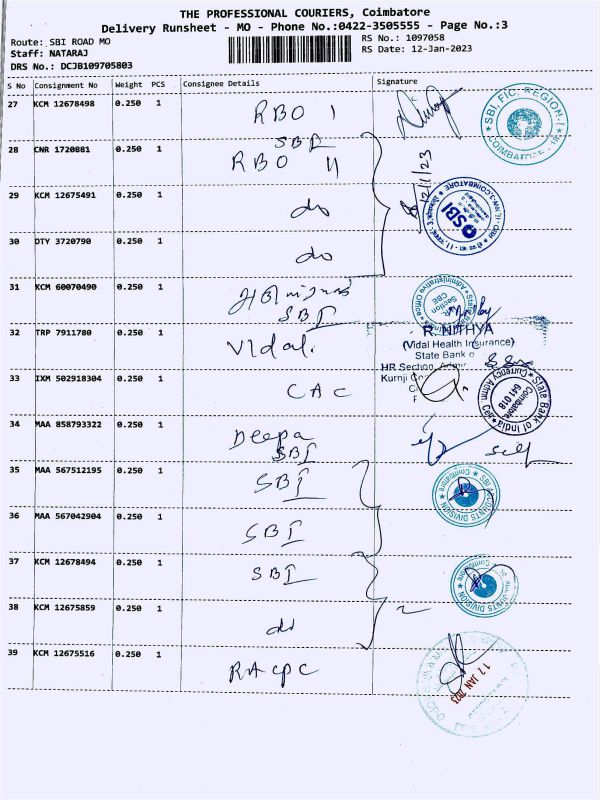 THE PROFESSIONAL COURIERS, Coimbatore
Delivery Runsheet - MO - Phone No.:0422-3505555 - Page No.:3
Route: SBI ROAD MO
RS No.: 1097058
Staff: NATARAJ
RS Date: 12-Jan-2023
DRS No.: DCJB109705803
S No Consignment No Weight PCS Consignee Details Signature
27 KCM 12678498 0.250 1 RBO I
SBI, FIC, REGION-I
COIMBATORE - 18
SBI
28 CNR 1720881 0.250 1 RBO II
12/1/23
29 KCM 12675491 0.250 1 do
SBI
30 DTY 3720790 0.250 1 do
31 KCM 60070490 0.250 1
SBI
State Bank
Administrative Office
HR Section
CBE
32 TRP 7911780 0.250 1 Vidal.
R. NITHYA
(Vidal Health Insurance)
State Bank o
HR Section, Admn
33 IXM 502918304 0.250 1 CAC
State Bank of India
Currency Admn. Cell
Coimbatore
641 018
34 MAA 858793322 0.250 1 Deepa
SBI
self
35 MAA 567512195 0.250 1 SBI
Coimbatore
36 MAA 567042904 0.250 1 SBI
37 KCM 12678494 0.250 1 SBI
38 KCM 12675859 0.250 1 do
39 KCM 12675516 0.250 1 RACPC
12 JAN 2023